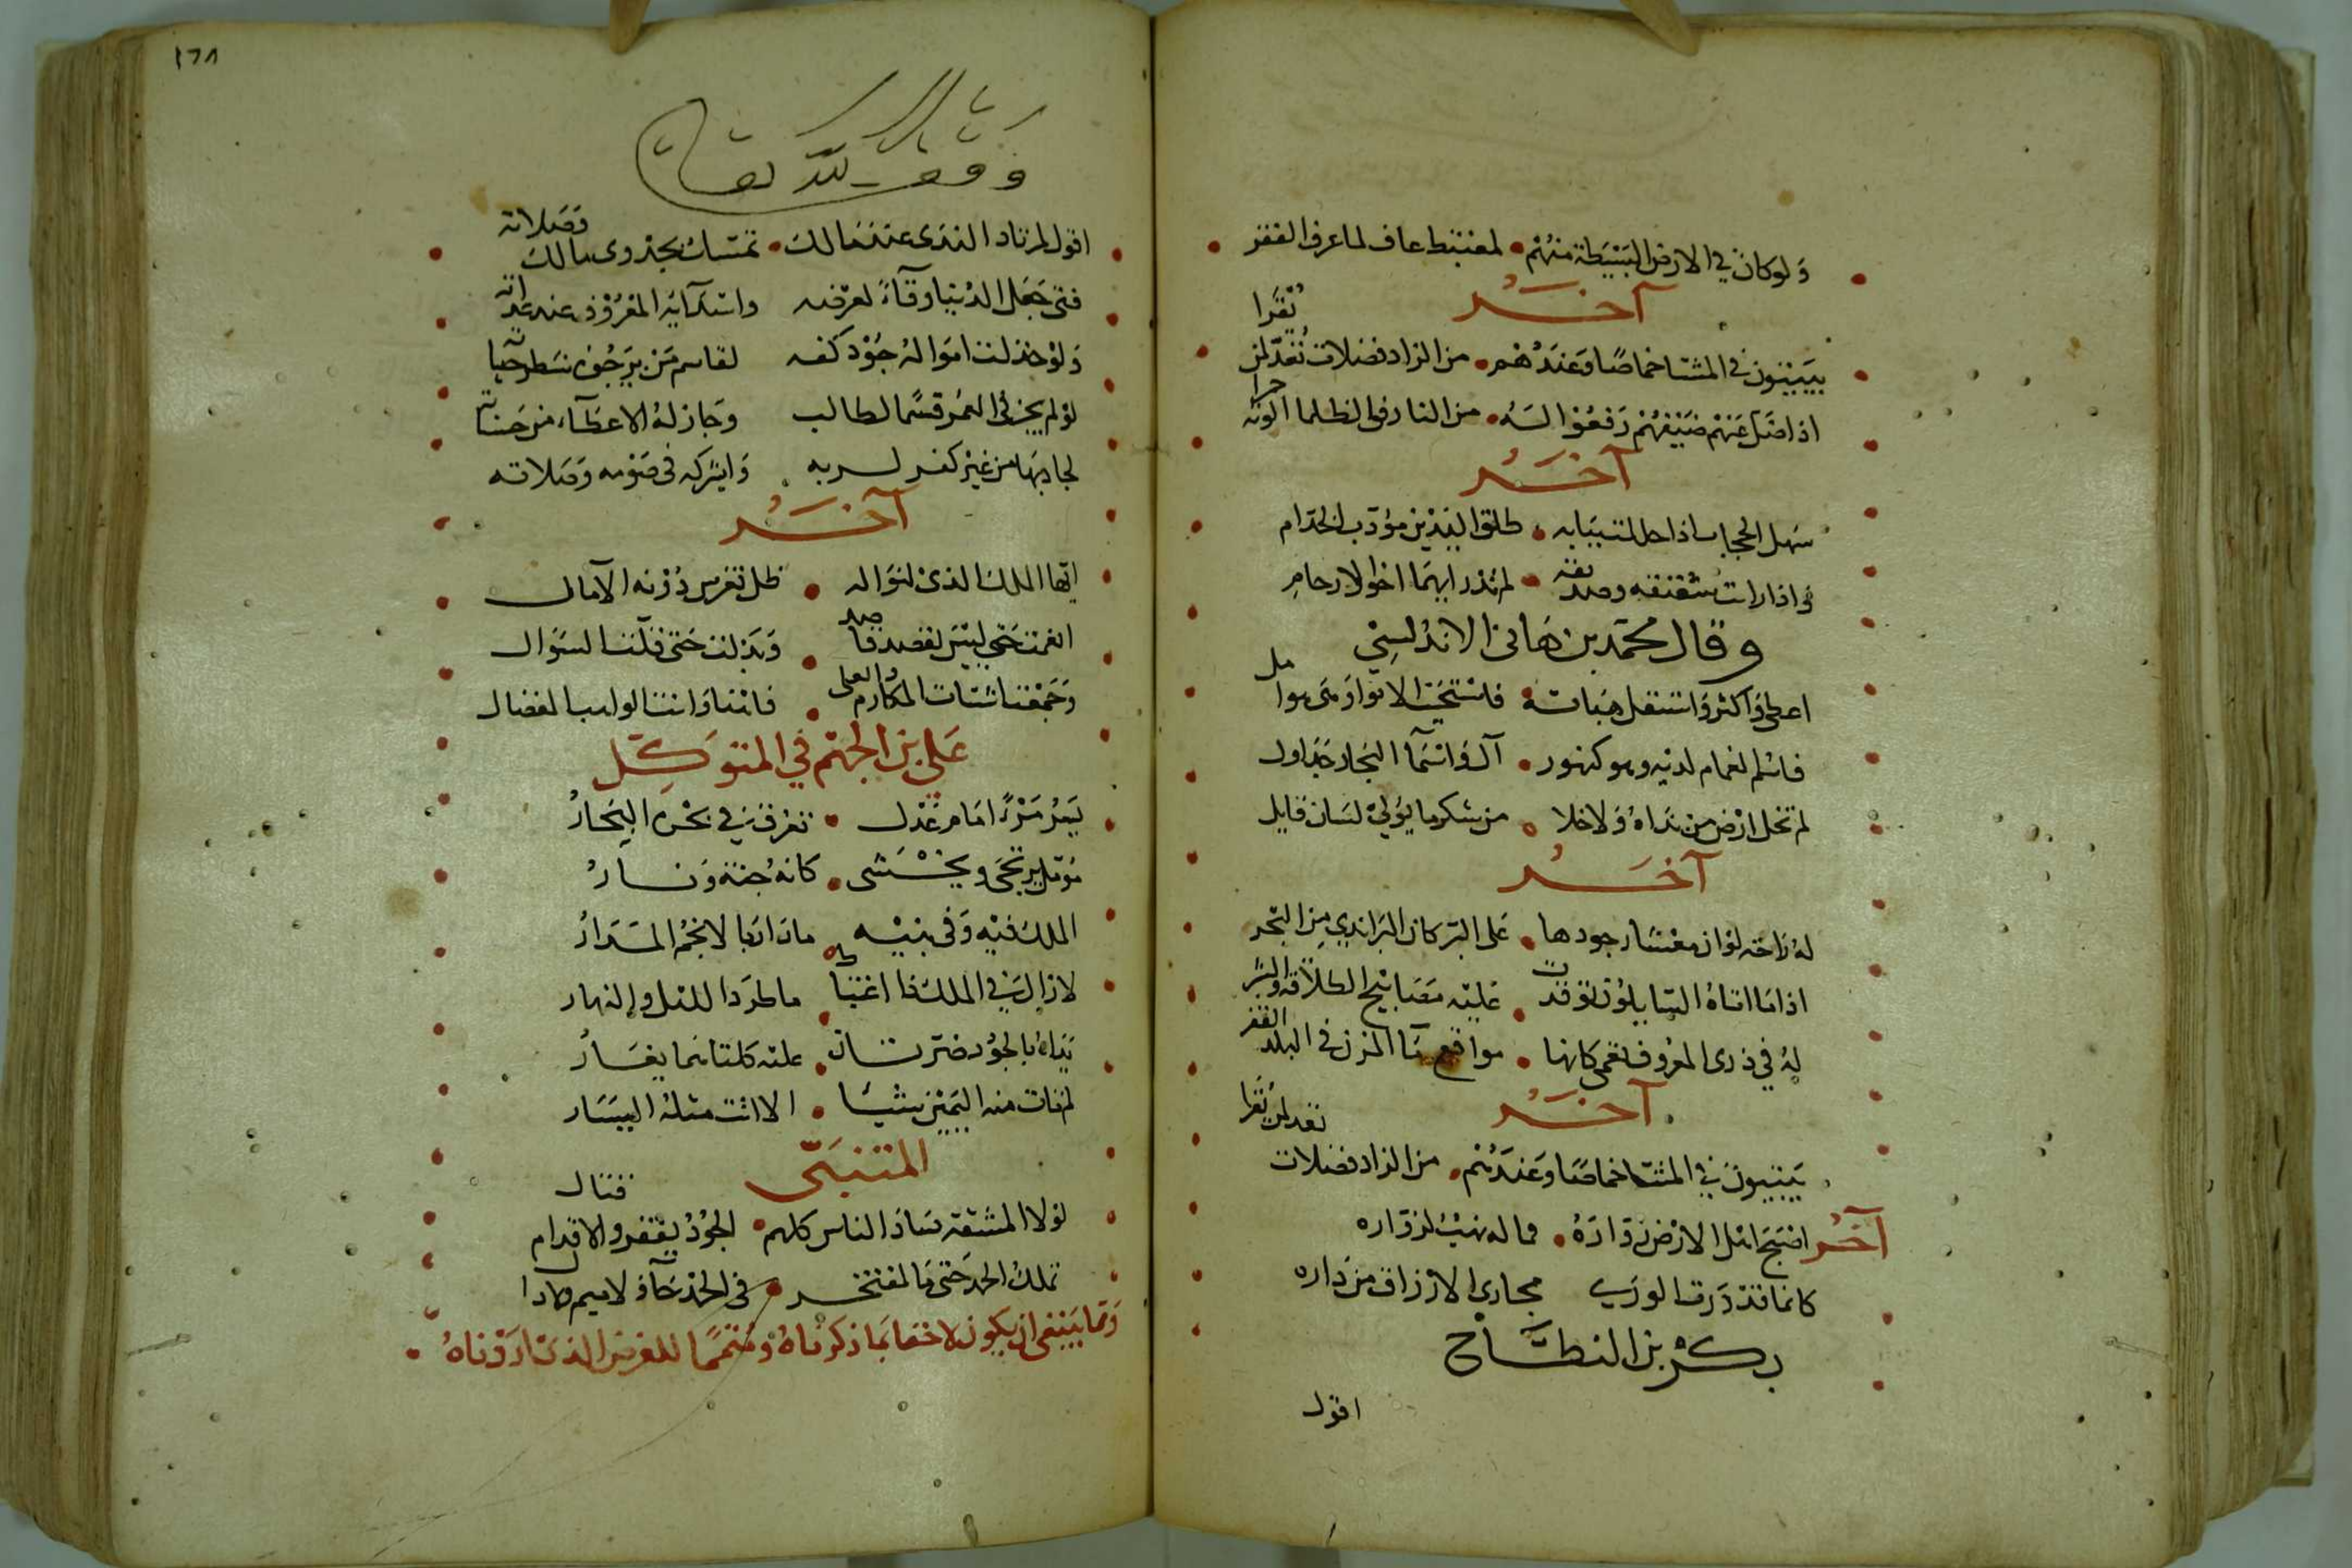 ولو كان في الارض البسيطة منهم • لمغتبط عاف لما عرف الفقر
آخر
يبيتون في المشتا خماصا وعندهم • من الزاد فضلات تعد لمن يقرا
اذا ضل عنهم ضيفهم رفعوا له • من النار في الظلما الوية حمرا
آخر
سهل الحجاب اذا حللت ببابه • طلق اليدين مؤدب الخدام
واذا رايت شقيقه وصديقه • لم تدر ايهما اخو الارحام
وقال محمد بن هانى الاندلسي
اعطى واكثر واستقل هباته • فاستحيت الانوا وهي هوامل
فاسم الغمام لديه وهو كنهور • آل واسما البحار جداول
لم تخل ارض من نداه ولا خلا • من شكر ما يولي لسان قايل
آخر
له راحة لو ان معشار جودها • على البر كان البر اندى من البحر
اذا ما اتاه السايلون توقدت • عليه مصابيح الطلاقة والبشر
له في ذرى المعروف نعمى كانها • مواقع مآ المزن في البلد القفر
آخر
يبيتون في المشتا خماصا وعندهم • من الزاد فضلات تعد لمن يقرا
آخر اصبح اهل الارض زواره • فماله نهب لزواره
كانما قد درت الورى مجارى الارزاق من داره
بكر بن النطاح
اقول
١٦٨
وقف لله تعالى
اقول لمرتاد الندى عند مالك • تمسك بجدوى مالك وصلاته
فتى جعل الدنيا وقآء لعرضه واسدآية المعروف عند عداته
ولو خذلت امواله جود كفه لقاسم من يرجوه شطر حياته
لو لم يجز في العمر قسما لطالب وجاز له الاعطآء من حسناته
لجاد بها من غير كفر لربه واشركه في صومه وصلاته
آخر
ايها الملك الذى لنواله • ظل تفرس دونه الآمال
انعمت حتى ليس لقصد قاصد • وبذلت حتى قلت السوال
وجمعت اشتات المكارم والعلى • فانت وانت الواهب المفضال
على بن الجهم في المتوكل
يسر من را امام عدل • تغرق في بحره البحار
مؤمل يرتجى ويخشى • كانه جنة ونار
الملك فيه وفى بنيه • ما دارت الانجم المدار
لا زال في الملك ذا اغتباط ما طرد الليل والنهار
يداه بالجود ضرتان • عليه كلتاهما يغار
لم تات منه اليمين شيئا • الا اتت مثله اليسار
المتنبى
لولا المشقة ساد الناس كلهم • الجود يفقر والاقدام قتال
تملك الحمد حتى ما لمفتخر • فى الحمد حآء ولا ميم ولا دال
ومما ينبغى ان يكون لاحقا بما ذكرناه ومتمما للغرض الذى اردناه •